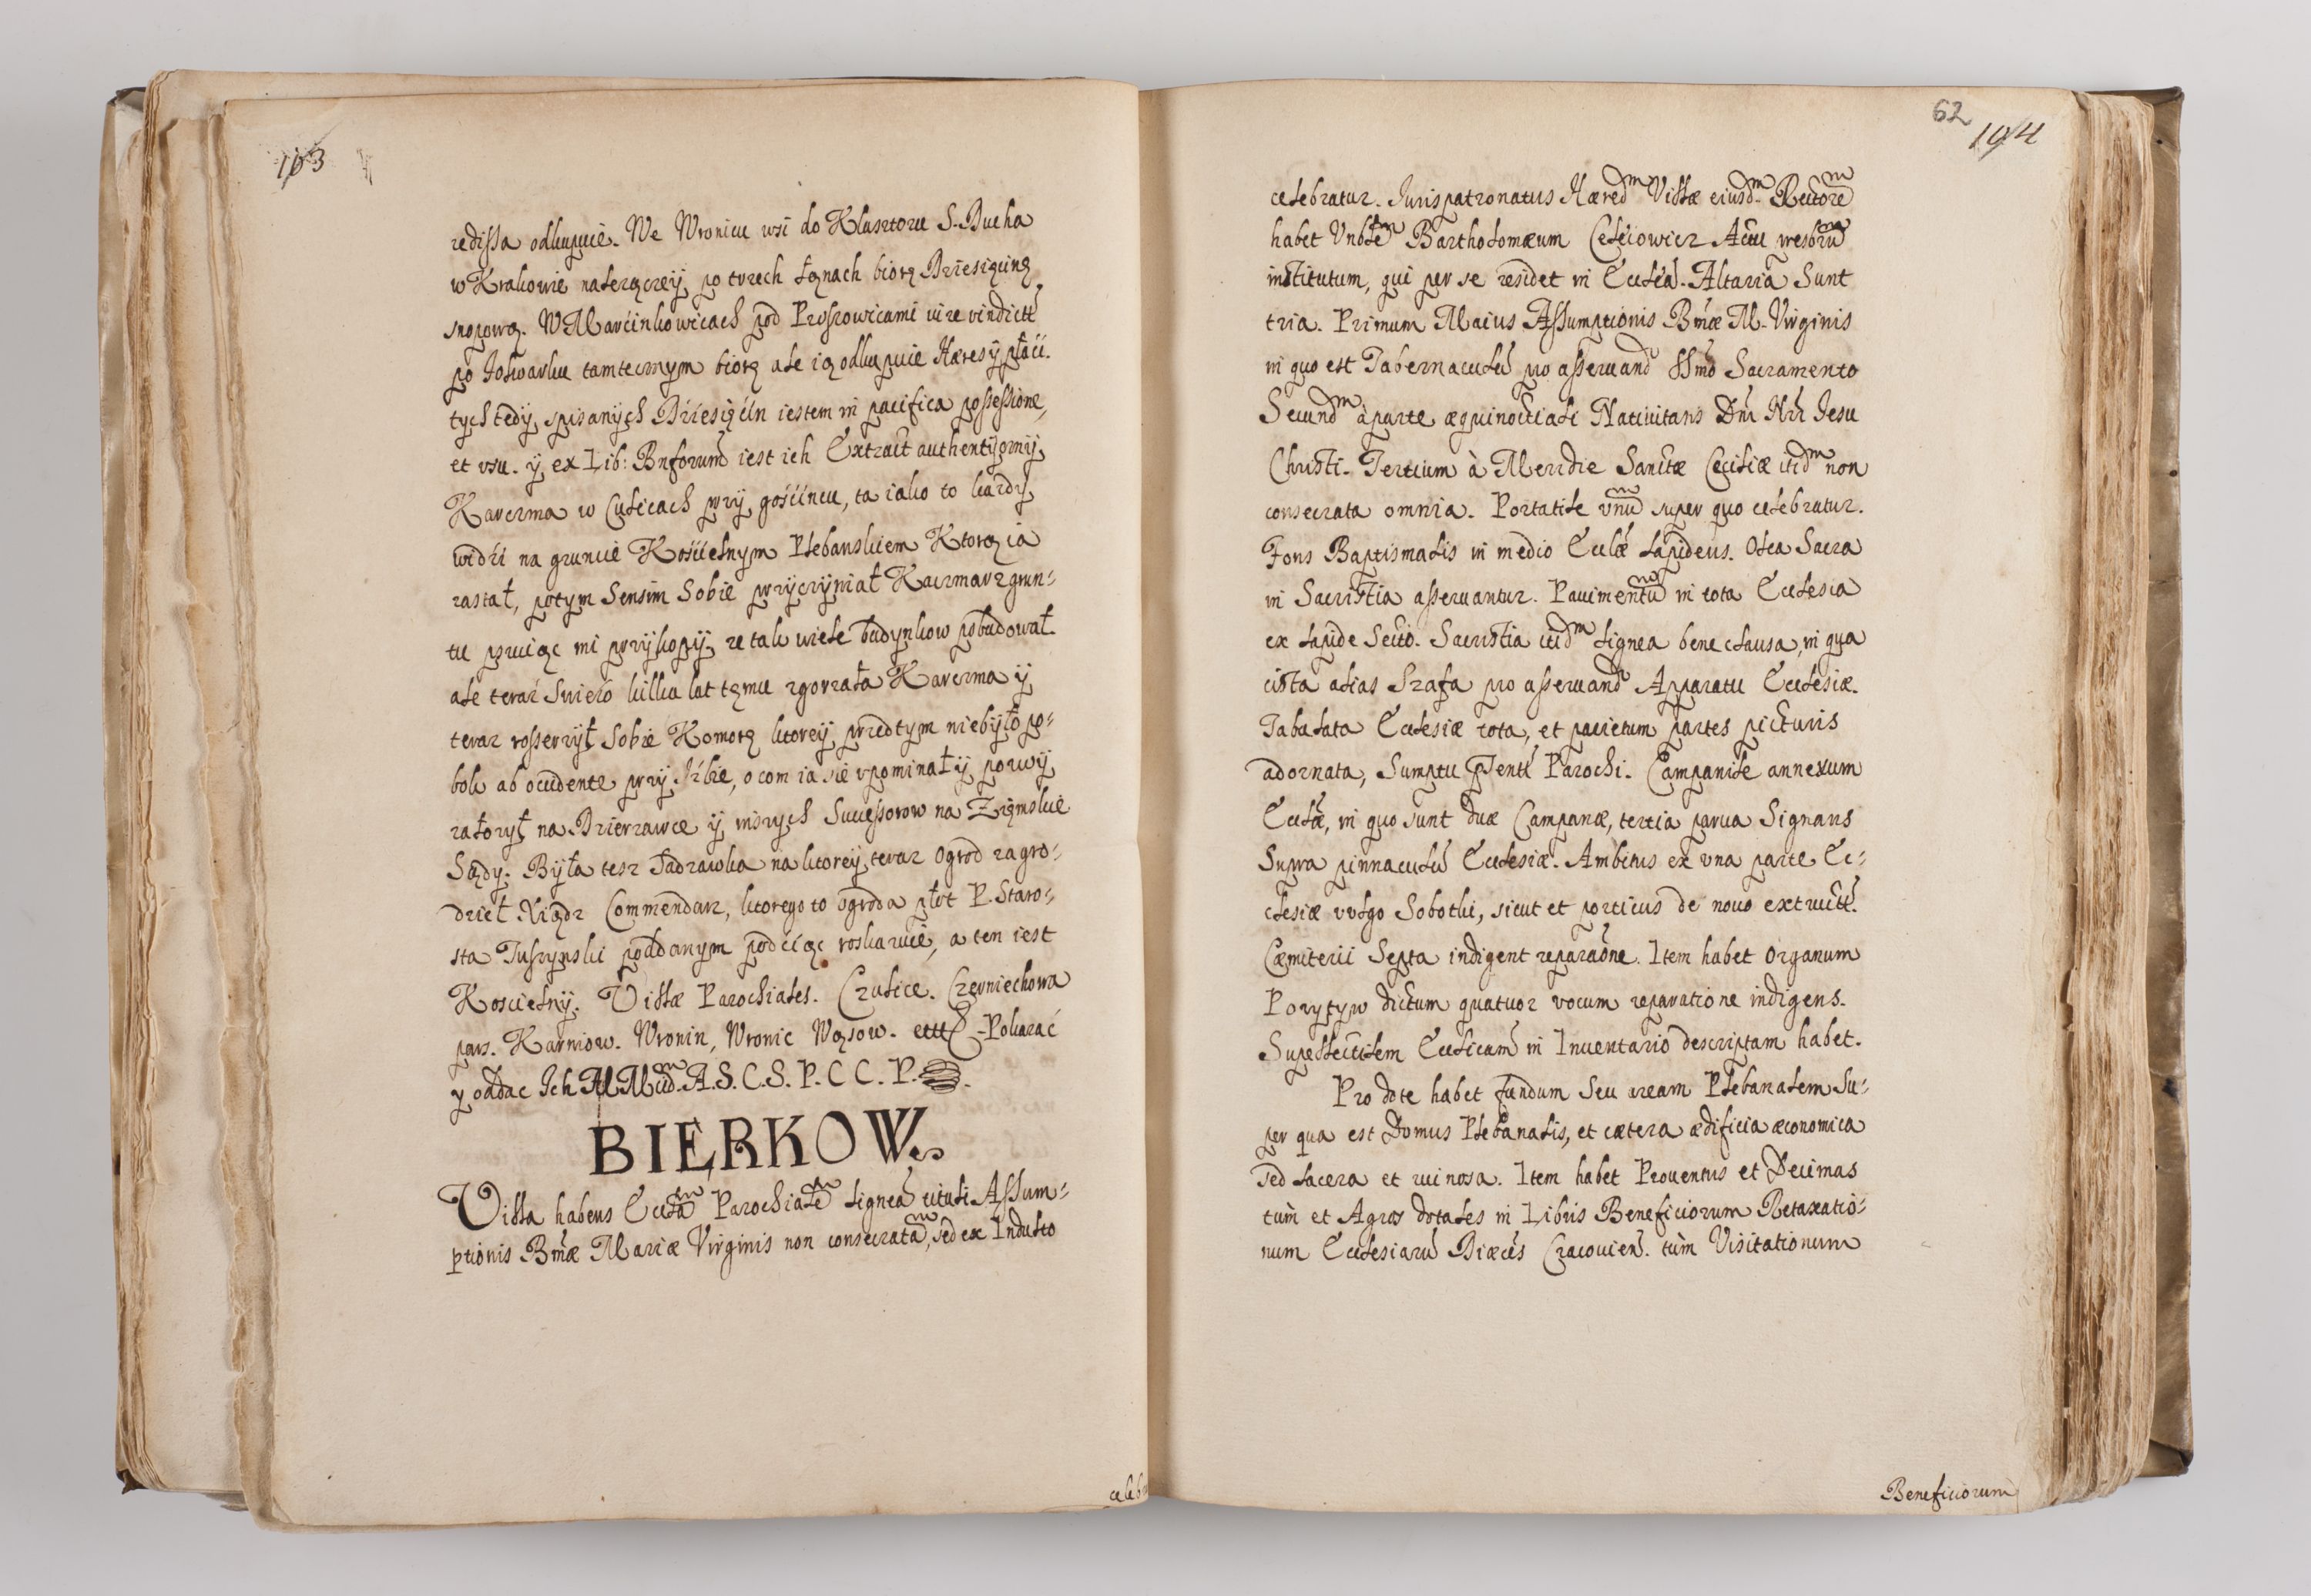 103
redissa odkupuie. We Wronicu wsi do Klasztoru S. Ducha
w Krakowie nalezączeij, po trzech łąnach biorą Dziesięcinę
snopową. W Marcinkowicach pod Proszowicami iure vindictẽ
po Folwarku tamtecznym biorę ale ią odkupuie Hæres ÿ płaci.
tych tedÿ, spisanych Dźiesięćin iestem in pacifica possessione,
et vsu. ÿ ex Lib: Bnforum iest ich Extract authentÿcznÿ,
Karczma w Culicach przÿ gośćincu, ta iako to kazdÿ
widźi na gruncie Kośćielnym Plebanskiem Ktorą ia
zastał, potym Sensim Sobie przÿczÿniał Kaczmarz grun-
tu psuiąc mi przÿkopÿ, ze tak wiele budynkow pobudował.
ale teraź Swieżo kilka lat temu zgorzała Karczma ÿ
teraz rosserzÿł Sobie Komorę ktoreÿ przedtym niebÿło po-
bok ab occidente przÿ Iźbie, o com ia sie vpominał ÿ pozwÿ
załozÿł na Dzierzawce ÿ inszych Successorow na Ziemskie
Sądÿ. Bÿła tesz Sadzawka na ktoreÿ teraz Ogrod zagro-
dzieł Xiądz Commendarz, ktorego to ogroda płot P. Staro-
sta Tuszynski poddanym podćiąc roskazuie, a ten iest
Koscielnÿ. Villæ Parochiales. Czulice. Czerniechowa
pars. Karniow. Wronin, Wronic Wąsow. etttc. Pokazać
y oddac Ich MM ud. A. S. C. S. P. C C. P.
BIERKOW.
Villa habens Ecclã Parochialẽ ligneã tituli Assum-
ptionis Bmæ Mariæ Virginis non consecratã, sed ex Indulto
celeb
62
104
celebratur. Iurispatronatus Hæred Villæ eiusd. Rectorẽ
habet Vnblẽ Bartholomæum Celeiowicz Actu presbrũ
institutum, qui per se residet in Ecclẽa. Altaria Sunt
tria. Primum Maius Assumptionis Bmæ M. Virginis
in quo est Tabernaculũ pro asseruand SSmo Sacramento
Secund à parte æquinoctiali Natiuitatis Dni Nri Iesu
Christi. Tertium à Meridie Sanctæ Ceciliæ itid non
consecrata omnia. Portatile vnũ super quo celebratur.
Fons Baptismalis in medio Ecclæ lapideus. Olea Sacra
in Sacristia asseruantur. Pauimentũ in tota Ecclesia
ex lapide Secto. Sacristia itid lignea bene clausa, in qua
cista alias Szafa pro asseruand Apparatu Ecclesiæ.
Tabulata Ecclesiæ tota, et parietum partes picturis
adornata, Sumptu Pṡentẽ Parochi. Campanile annexum
Ecclæ, in quo sunt duæ Campanæ, tertia parua Signans
Supra pinnaculũ Ecclesiæ. Ambitus ex vna parte Ec-
clesiæ vulgo Sobothi, sicut et porticus de nouo extructẽ.
Cæmiterii Septa indigent reparaõne. Item habet Organum
Pozytyw dictum quatuor vocum reparatione indigens.
Supellectilem Ecclicam in Inuentario descriptam habet.
Pro dote habet fundum Seu aream Plebanalem Su-
per qua est Domus Plebanalis, et cætera ædificia æconomica
sed lacera et ruinosa. Item habet Prouentus et Decimas
tum et Agros dotales in Libris Beneficiorum Retaxatio-
num Ecclesiarũ Diæcẽs Cracouien. tùm Visitationum
Beneficiorum